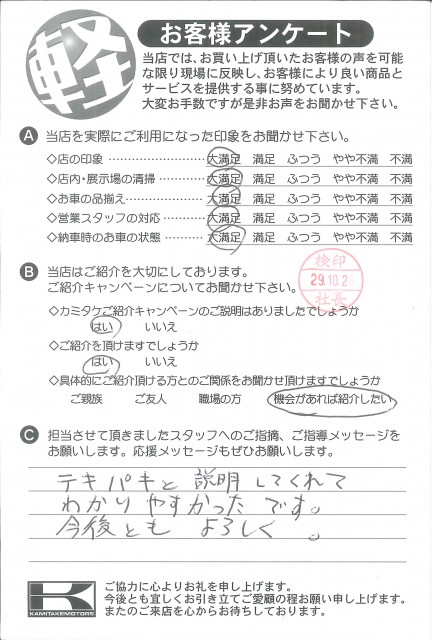 軽
お客様アンケート
当店では、お買い上げ頂いたお客様の声を可能
な限り現場に反映し、お客様により良い商品と
サービスを提供する事に努めています。
大変お手数ですが是非お声をお聞かせ下さい。
A 当店を実際にご利用になった印象をお聞かせ下さい。
◇店の印象 ………………… 大満足 満足 ふつう やや不満 不満
◇店内・展示場の清掃 ………… 大満足 満足 ふつう やや不満 不満
◇お車の品揃え ……………… 大満足 満足 ふつう やや不満 不満
◇営業スタッフの対応 ………… 大満足 満足 ふつう やや不満 不満
◇納車時のお車の状態 ………… 大満足 満足 ふつう やや不満 不満
B 当店はご紹介を大切にしております。
ご紹介キャンペーンについてお聞かせ下さい。
検印
29.10.2
社長
◇カミタケご紹介キャンペーンのご説明はありましたでしょうか
はい いいえ
◇ご紹介を頂けますでしょうか
はい いいえ
◇具体的にご紹介頂ける方とのご関係をお聞かせ頂けますでしょうか
ご親族 ご友人 職場の方 機会があれば紹介したい
C 担当させて頂きましたスタッフへのご指摘、ご指導メッセージを
お願いします。応援メッセージもぜひお願いします。
テキパキと説明してくれて
わかりやすかったです。
今後ともよろしく。
K
KAMITAKEMOTORS
ご協力に心よりお礼を申し上げます。
今後とも宜しくお引き立てご愛顧の程お願い申し上げます。
またのご来店を心からお待ちしております。